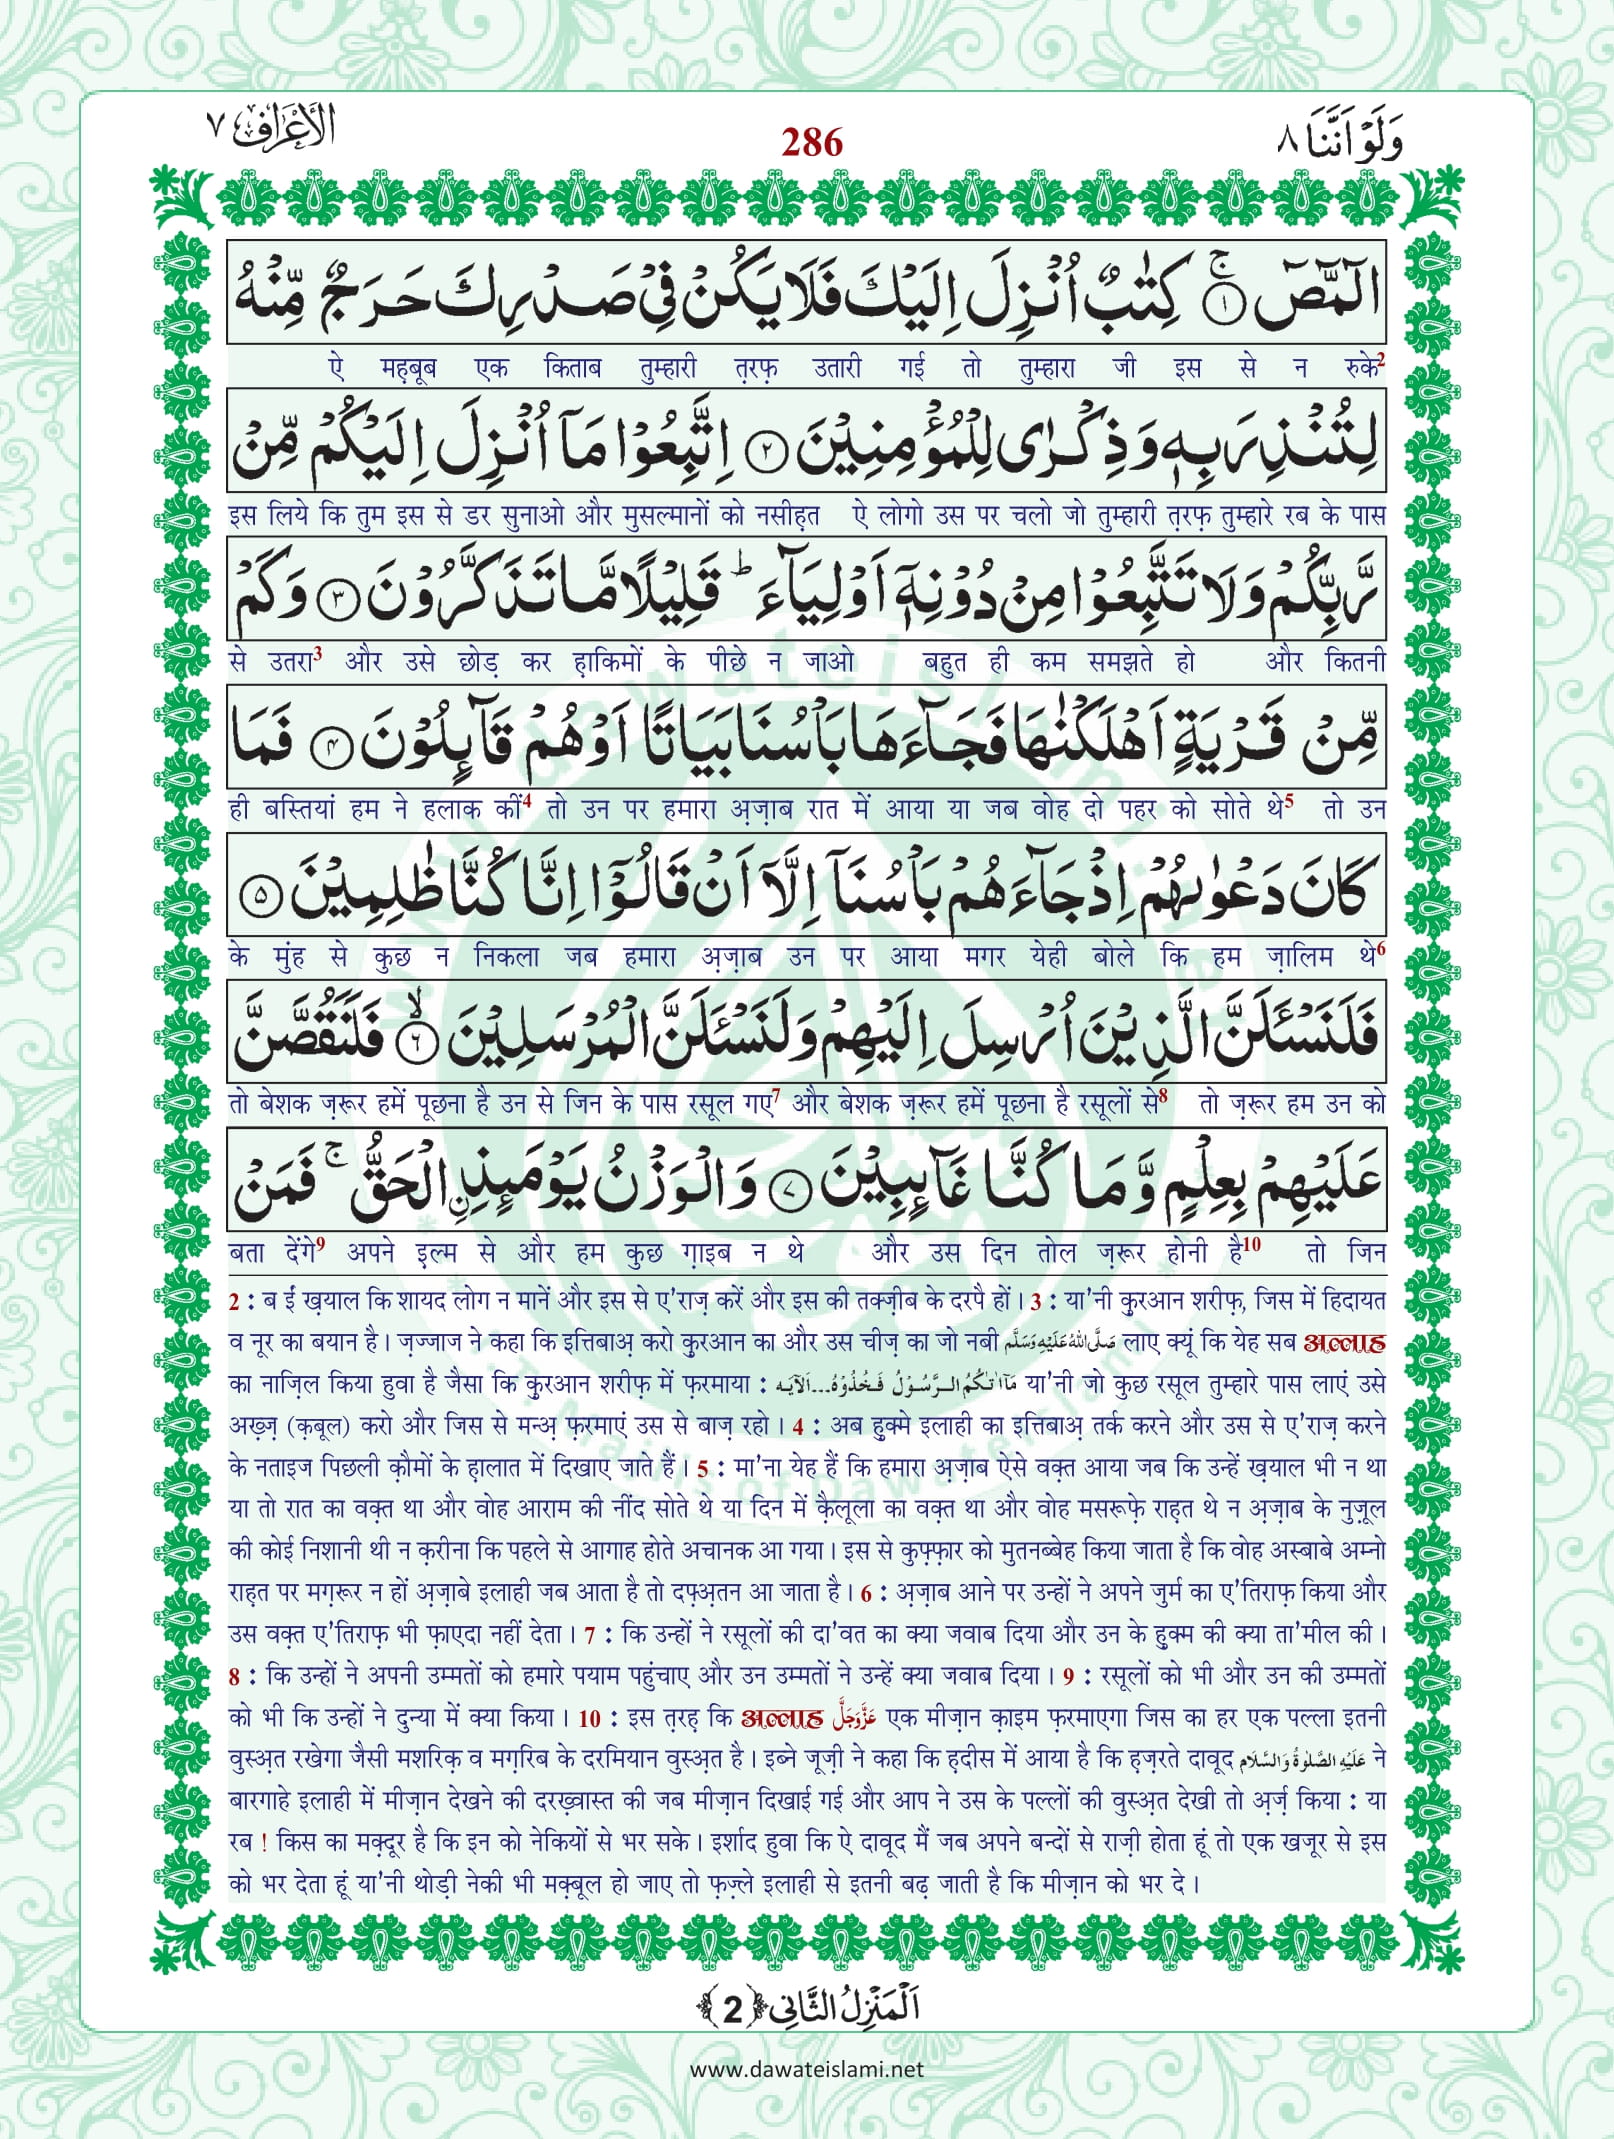 وَلَوْ اَنَّنَا ٨
286
اَلْاَعْرَاف ٧
الٓمّٓصٓ ۚ﴿١﴾ كِتٰبٌ اُنْزِلَ اِلَيْكَ فَلَا يَكُنْ فِيْ صَدْرِكَ حَرَجٌ مِّنْهُ
ऐ मह़बूब एक किताब तुम्हारी त़रफ़ उतारी गई तो तुम्हारा जी इस से न रुके2
لِتُنْذِرَ بِهٖ وَ ذِكْرٰى لِلْمُؤْمِنِيْنَ ﴿٢﴾ اِتَّبِعُوْا مَاۤ اُنْزِلَ اِلَيْكُمْ مِّنْ
इस लिये कि तुम इस से डर सुनाओ और मुसल्मानों को नसीह़त ऐ लोगो उस पर चलो जो तुम्हारी त़रफ़ तुम्हारे रब के पास
رَّبِّكُمْ وَلَا تَتَّبِعُوْا مِنْ دُوْنِهٖۤ اَوْلِيَآءَ ؕ قَلِيْلًا مَّا تَذَكَّرُوْنَ ﴿٣﴾ وَكَمْ
से उतरा3 और उसे छोड़ कर ह़ाकिमों के पीछे न जाओ बहुत ही कम समझते हो और कितनी
مِّنْ قَرْيَةٍ اَهْلَكْنٰهَا فَجَآءَهَا بَاْسُنَا بَيَاتًا اَوْ هُمْ قَآىِٕلُوْنَ ﴿٤﴾ فَمَا
ही बस्तियां हम ने हलाक कीं4 तो उन पर हमारा अ़ज़ाब रात में आया या जब वोह दो पहर को सोते थे5 तो उन
كَانَ دَعْوٰىهُمْ اِذْ جَآءَهُمْ بَاْسُنَاۤ اِلَّاۤ اَنْ قَالُوْۤا اِنَّا كُنَّا ظٰلِمِيْنَ ﴿٥﴾
के मुंह से कुछ न निकला जब हमारा अ़ज़ाब उन पर आया मगर येही बोले कि हम ज़ालिम थे6
فَلَنَسْـَٔلَنَّ الَّذِيْنَ اُرْسِلَ اِلَيْهِمْ وَلَنَسْـَٔلَنَّ الْمُرْسَلِيْنَ ۙ﴿٦﴾ فَلَنَقُصَّنَّ
तो बेशक ज़रूर हमें पूछना है उन से जिन के पास रसूल गए7 और बेशक ज़रूर हमें पूछना है रसूलों से8 तो ज़रूर हम उन को
عَلَيْهِمْ بِعِلْمٍ وَّمَا كُنَّا غَآىِٕبِيْنَ ﴿٧﴾ وَالْوَزْنُ يَوْمَىِٕذِ ِۨالْحَقُّ ۚ فَمَنْ
बता देंगे9 अपने इ़ल्म से और हम कुछ ग़ाइब न थे और उस दिन तोल ज़रूर होनी है10 तो जिन
2 : ब ईं ख़याल कि शायद लोग न मानें और इस से ए'राज़ करें और इस की तक्ज़ीब के दरपै हों। 3 : या'नी कुरआन शरीफ़, जिस में हिदायत
व नूर का बयान है। ज़ज्जाज ने कहा कि इत्तिबाअ़ करो कुरआन का और उस चीज़ का जो नबी صَلَّى اللّٰهُ عَلَيْهِ وَسَلَّم लाए क्यूं कि येह सब अल्लाह
का नाज़िल किया हुवा है जैसा कि क़ुरआन शरीफ़ में फ़रमाया : مَآ اٰتٰكُمُ الرَّسُوْلُ فَخُذُوْهُ...الْآيَه या'नी जो कुछ रसूल तुम्हारे पास लाएं उसे
अख़्ज़ (क़बूल) करो और जिस से मन्अ़ फ़रमाएं उस से बाज़ रहो। 4 : अब हुक्मे इलाही का इत्तिबाअ़ तर्क करने और उस से ए'राज़ करने
के नताइज पिछली क़ौमों के ह़ालात में दिखाए जाते हैं। 5 : मा'ना येह हैं कि हमारा अ़ज़ाब ऐसे वक़्त आया जब कि उन्हें ख़याल भी न था
या तो रात का वक़्त था और वोह आराम की नींद सोते थे या दिन में क़ैलूला का वक़्त था और वोह मसरूफ़े राह़त थे न अ़ज़ाब के नुज़ूल
की कोई निशानी थी न क़रीना कि पहले से आगाह होते अचानक आ गया। इस से कुफ़्फ़ार को मुतनब्बेह किया जाता है कि वोह अस्बाबे अम्नो
राह़त पर मग़रूर न हों अ़ज़ाबे इलाही जब आता है तो दफ़्अ़तन आ जाता है। 6 : अ़ज़ाब आने पर उन्हों ने अपने जुर्म का ए'तिराफ़ किया और
उस वक़्त ए'तिराफ़ भी फ़ाएदा नहीं देता। 7 : कि उन्हों ने रसूलों की दा'वत का क्या जवाब दिया और उन के हुक्म की क्या ता'मील की।
8 : कि उन्हों ने अपनी उम्मतों को हमारे पयाम पहुंचाए और उन उम्मतों ने उन्हें क्या जवाब दिया। 9 : रसूलों को भी और उन की उम्मतों
को भी कि उन्हों ने दुन्या में क्या किया। 10 : इस त़रह़ कि अल्लाह عَزَّوَجَلَّ एक मीज़ान क़ाइम फ़रमाएगा जिस का हर एक पल्ला इतनी
वुस्अ़त रखेगा जैसी मशरिक़ व मग़रिब के दरमियान वुस्अ़त है। इब्ने जूज़ी ने कहा कि ह़दीस में आया है कि ह़ज़रते दावूद عَلَيْهِ الصَّلٰوةُ وَالسَّلَام ने
बारगाहे इलाही में मीज़ान देखने की दरख़्वास्त की जब मीज़ान दिखाई गई और आप ने उस के पल्लों की वुस्अ़त देखी तो अ़र्ज़ किया : या
रब ! किस का मक़्दूर है कि इन को नेकियों से भर सके। इर्शाद हुवा कि ऐ दावूद मैं जब अपने बन्दों से राज़ी होता हूं तो एक खजूर से इस
को भर देता हूं या'नी थोड़ी नेकी भी मक़्बूल हो जाए तो फ़ज़्ले इलाही से इतनी बढ़ जाती है कि मीज़ान को भर दे।
اَلْمَنْزِلُ الثَّانِي ﴿2﴾
www.dawateislami.net